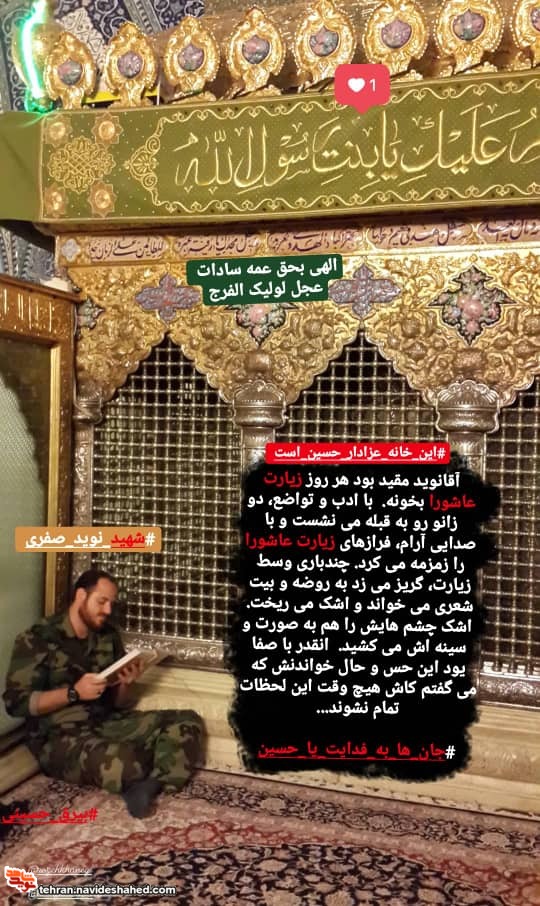 1
عَلَيْكِ يا بِنتَ رَسولِ الله
الهی بحق عمه سادات
عجل لولیک الفرج
#این_خانه_عزادار_حسین_است
آقانوید مقید بود هر روز زیارت
عاشورا بخونه. با ادب و تواضع، دو
زانو رو به قبله می نشست و با
صدایی آرام، فرازهای زیارت عاشورا
را زمزمه می کرد. چندباری وسط
زیارت، گریز می زد به روضه و بیت
شعری می خواند و اشک می ریخت.
اشک چشم هایش را هم به صورت و
سینه اش می کشید. انقدر با صفا
بود این حس و حال خواندنش که
می گفتم کاش هیچ وقت این لحظات
تمام نشوند...
#جان_ها_به_فدایت_یا_حسین
#شهید_نوید_صفری
#بیرق_حسینی
tehran.navideshahed.com